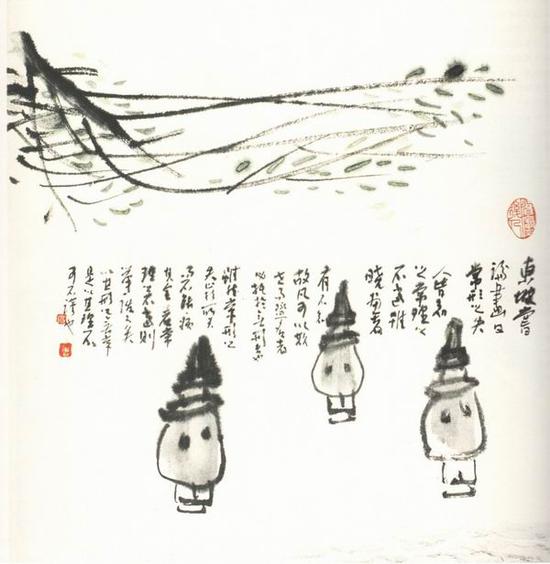 東坡嘗
論畫曰
常形之失
人皆知
之常理之
不當雖
曉畫者
有不知
故凡可以欺
世而取名者
雖然常形之
失止於所失
而不能病
其全若常
理之不當則
舉廢之矣
以其形之無常
是以其理不
可不謹也